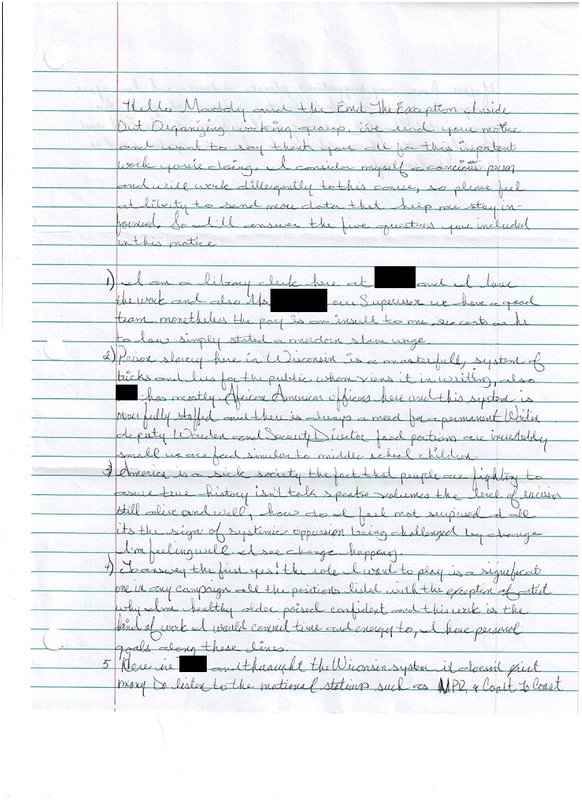 Hello Maddy and the End The Exception Inside
Out Organizing working group, i've read your notice
and want to say thank you all for this important
work you're doing. I consider myself a concious person
and will work dillegently to this cause, so please feel
at liberty to send more data that help me stay in-
formed. So I'll answer the five questions you included
in this notice
1) I am a library clerk here at and I love
the work and also Ms. our Supervisor we have a good
team, monetheless the pay is an insult to me, 20 cents an hr
to low simply stated a modern slave wage.
2) Prison slavery here in Wisconsin is a masterfull, system of
tricks and lies for the public whom views it in writing, also
has mostly African American officers here and this system is
never fully staffed and there is always a need for a permanent
deputy Warden and Security Director food portions are incredibly
small we are feed similar to middle school children.
3) America is a sick society the fact that people are fighting to
assure true history isn't talk speaks volumes the level of racism
still alive and well, how do I feel not surprised at all
its the sign of systimic oppression being challenged by change
I'm feeling well I see change happening.
4) To answer the first yes! the role I want to play is a significat
one in any campaign all the positions listed with the exception of artist
why I'm healthy older poised confident and this work is the
kind of work I would commit time and energy to, I have personal
goals along these lines.
5 Here in and throught the Wiconsin system it doesn't exist
many do listen to the national stations such as NPR, & Coast to Coast